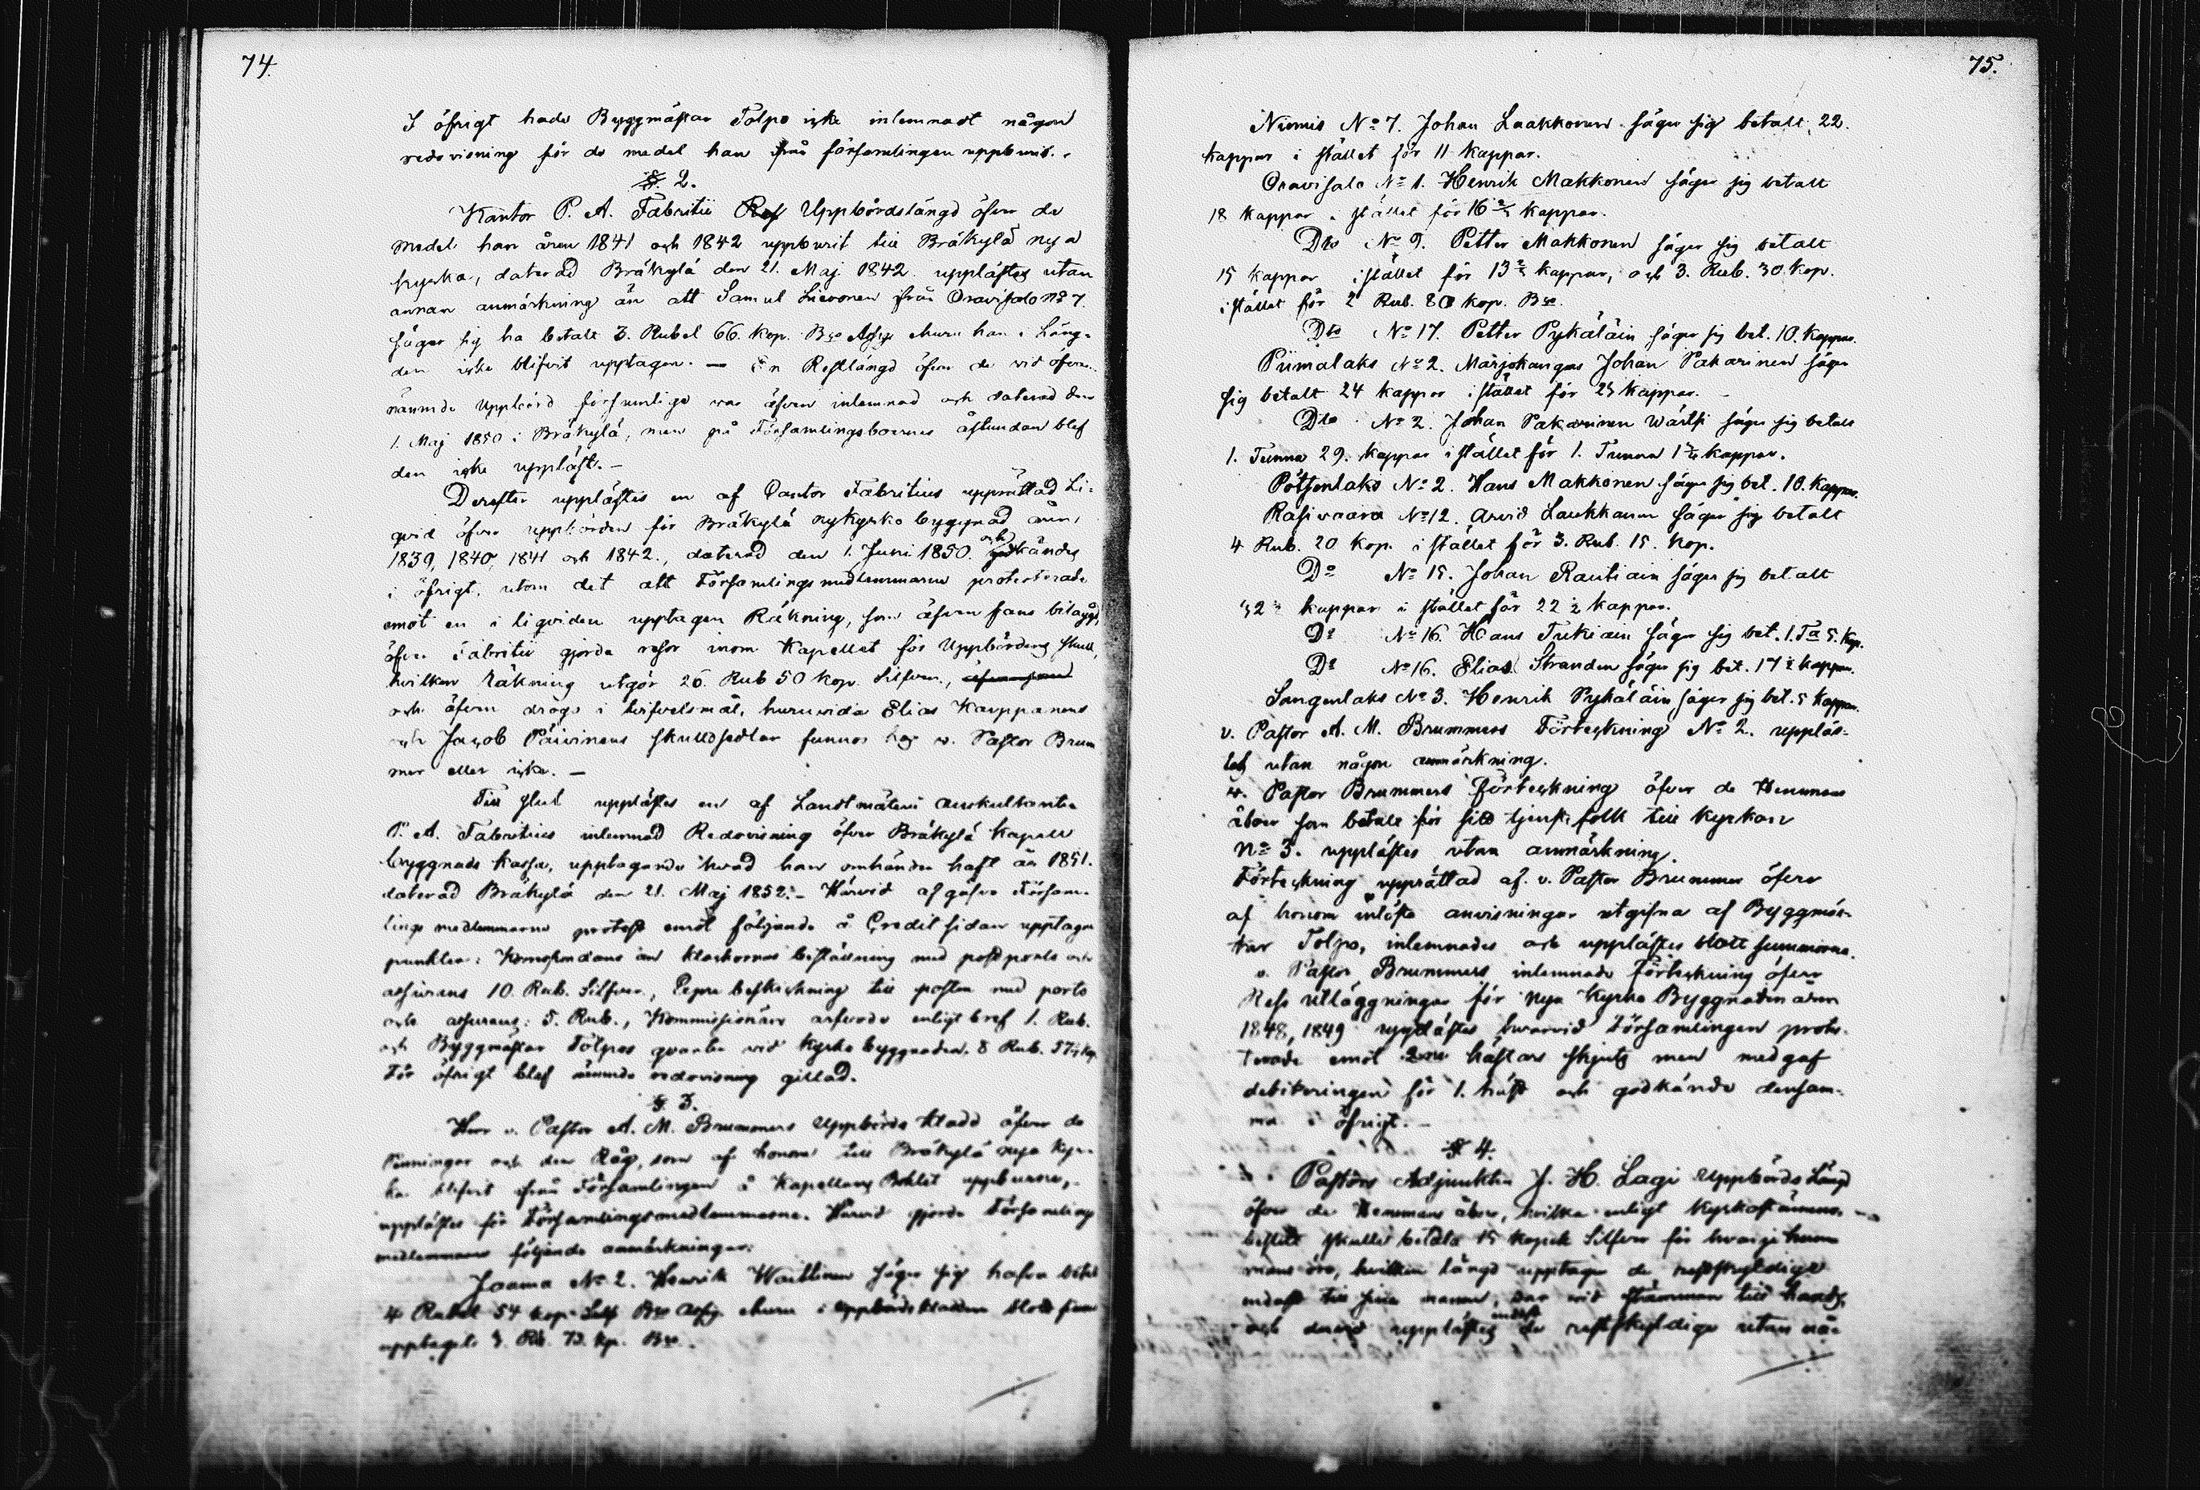 74.
I öfrigt hade Byggmästar Tolpo icke inlemnadt någon
redovisning för de medel han från församlingen uppburit.
§. 2.
Kantor P. A. Fabritii Uppbördslängd öfver de
medel han åren 1841 och 1842 uppburit till Bräkylä nya
kyrka, daterad Bräkylä den 21. Maj 1842. upplästes utan
annan anmärkning än att Samul Lievonen från Oravisalo No 7
säger sig ha betalt 3. Rubel 66. kop. Bco Assig. ehuru han i Läng-
den icke blifvit upptagen. — En Restlängd öfver de vid öfvan-
nämnde Uppbörd försumlige var äfven inlemnad och daterad den
1. Maj 1850 i Bräkylä, men på Församlingsboernes åstundan blef
den icke uppläst. —
Derefter upplästes en af Cantor Fabritius upprättad Li-
qvid öfver uppbörden för Bräkylä nykyrko byggnad åren,
1839, 1840, 1841 och 1842., daterad den 1. Juni 1850. och godkändes
i öfrigt, utom det att Församlings medlemmarne protesterade
emot en i liqviden upptagen Räkning, som äfven fans bilagd,
öfver Fabritii gjorde resor inom Kapellet för Uppbördens skull,
hvilken räkning utgör 26. Rub 50 kop. Silfver, äfvensom
och äfven drogs i tvifvelsmål, huruvida Elias Karppanens
och Jacob Päivinens skuldsedlar funnos hos v. Pastor Brum
mer eller icke. —
Till slut upplästes en af Landtmäteri Auskultanten
P. A. Fabritius inlemnad Redovisning öfver Bräkylä kapell
byggnads kassa, upptagande hvad han omhänder haft år 1851.
daterad Bräkylä den 21. Maj 1852. — Härvid afgåfvo Försam-
lings medlemmarne protest emot följande å Credit sidan upptagne
punkter: Korrespondans om klockornas beställning med postporto och
assurans 10. Rub. Silfver, beskickning till posten med porto
och assurans: 5. Rub., Kommissionärs arfvode enligt bref 1. Rub.
och Byggmästar Tolpos qvarter vid kyrko byggnaden. 8 Rub. 57½ kop.
För öfrigt blef nämnde redovisning gillad.
§ 3.
Herr v. Pastor A. M. Brummers Uppbörds kladd öfver de
Penningar och den Råg, som af honom till Bräkylä nya kyr-
ka blifvit från Församlingen å Kapellans Bohlet uppburne,
upplästes för Församlingsmedlemmarne. Härvid gjorde Församlings
medlemmarne följande anmärkningar:
Jaama No 2. Henrik Waittinen säger sig hafva betalt
4 Rubel 54 kop. Bco Assig. ehuru i Uppbörds kladden blott finnes
upptagit 3. Rub. 73. kop. Bco.
75.
Niemis No 7. Johan Laakkonen säger sig betalt 22.
kappar i stället för 11 kappar.
Oravisalo No 1. Henrik Makkonen säger sig betalt
18 kappar i stället för 16 2/3 kappar.
Dto No 9. Petter Makkonen säger sig betalt
15 kappar i stället för 13 2/3 kappar, och 3. Rub. 30 kop.
i stället för 2 Rub. 80 kop. Bco.
Dto No 17. Petter Pykäläin säger sig bet. 10. kappar.
Piimalaks No 2. Marjokangas Johan Pakarinen säger
sig betalt 24 kappar i stället för 23 kappar.
Dto No 2. Johan Pakarinen Wärtsi säger sig betalt
1. Tunna 29. kappar i stället för 1. Tunna 1 ½ kappar.
Pötsönlaks No 2. Hans Makkonen säger sig bet. 10. kappar.
Rasivaara No 12. Arvid Laukkanen säger sig betalt
4 Rub. 20 kop. i stället för 3. Rub. 15. kop.
Do No 15. Johan Rautiain säger sig betalt
32 ½ kappar i stället för 22 ½ kappar.
Do No 16. Hans Tukiain säger sig bet. 1. Ta 5. kap.
Do No 16. Elias Stranden säger sig bet. 17 ½ kappar.
Sangenlaks No 3. Henrik Pykäläin säger sig bet. 5 kappar.
v. Pastor A. M. Brummers Förteckning No 2. uppläs-
tes utan någon anmärkning.
v. Pastor Brummers Förteckning öfver de Hemmans
åboer som betalt för sitt tjenstefolk till kyrkan
No 3. upplästes utan anmärkning.
Förteckning upprättad af v. Pastor Brummer öfver
af honom inlösta anvisningar utgifna af Byggmäs-
tar Tolpo, inlemnades och upplästes blott summorna.
v. Pastor Brummers inlemnade Förteckning öfver
Rese utläggningar för Nya Kyrko Byggnaden åren
1848, 1849 upplästes, hvarvid Församlingen protes-
terade emot 2ne hästars skjuts men medgaf
debiteringen för 1. häst och godkände densam-
ma i öfrigt. —
§ 4.
Pastors Adjunkten J. H. Lagi Uppbörds Längd
öfver de Hemmans åboer, hvilka enligt Kyrkostämmo-
beslut skulle betala 15 kopek Silfver för hvarje hem-
mans öre, hvilken längd upptager de restskyldige
endast till sina namn, var vid stämman till hands,
och deraf upplästes endast de restskyldige utan nå-